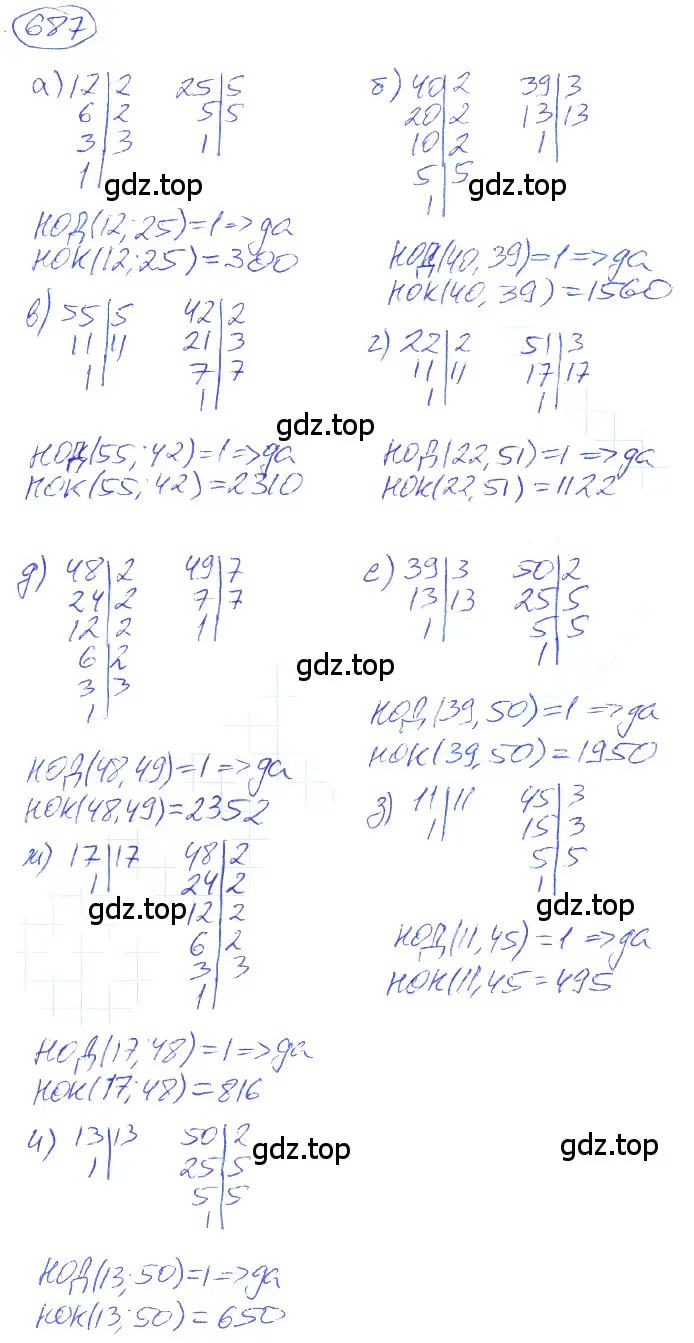 687
а) 12|2 25|5
6|2 5|5
3|3 1|
1|
gdz.top
НОД(12; 25)=1=>да
НОК(12; 25)=300
б) 40|2 39|3
20|2 13|13
10|2 1|
5|5
1|
gdz.top
НОД(40, 39)=1=>да
НОК(40, 39)=1560
в) 55|5 42|2
11|11 21|3
1| 7|7
1|
gdz.top
НОД(55; 42)=1=>да
НОК(55; 42)=2310
г) 22|2 51|3
11|11 17|17
1| 1|
НОД(22, 51)=1=>да
НОК(22, 51)=1122
д) 48|2 49|7
24|2 7|7
12|2 1|
6|2
3|3
1|
gdz.top
НОД(48, 49)=1=>да
НОК(48, 49)=2352
е) 39|3 50|2
13|13 25|5
1| 5|5
1|
НОД(39, 50)=1=>да
НОК(39, 50)=1950
ж) 17|17 48|2
1| 24|2
12|2
6|2
3|3
1|
gdz.top
НОД(17; 48)=1=>да
НОК(17; 48)=816
з) 11|11 45|3
1| 15|3
5|5
1|
gdz.top
НОД(11, 45)=1=>да
НОК(11, 45=495
и) 13|13 50|2
1| 25|5
5|5
1|
gdz.top
gdz.top
НОД(13; 50)=1=>да
НОК(13; 50)=650